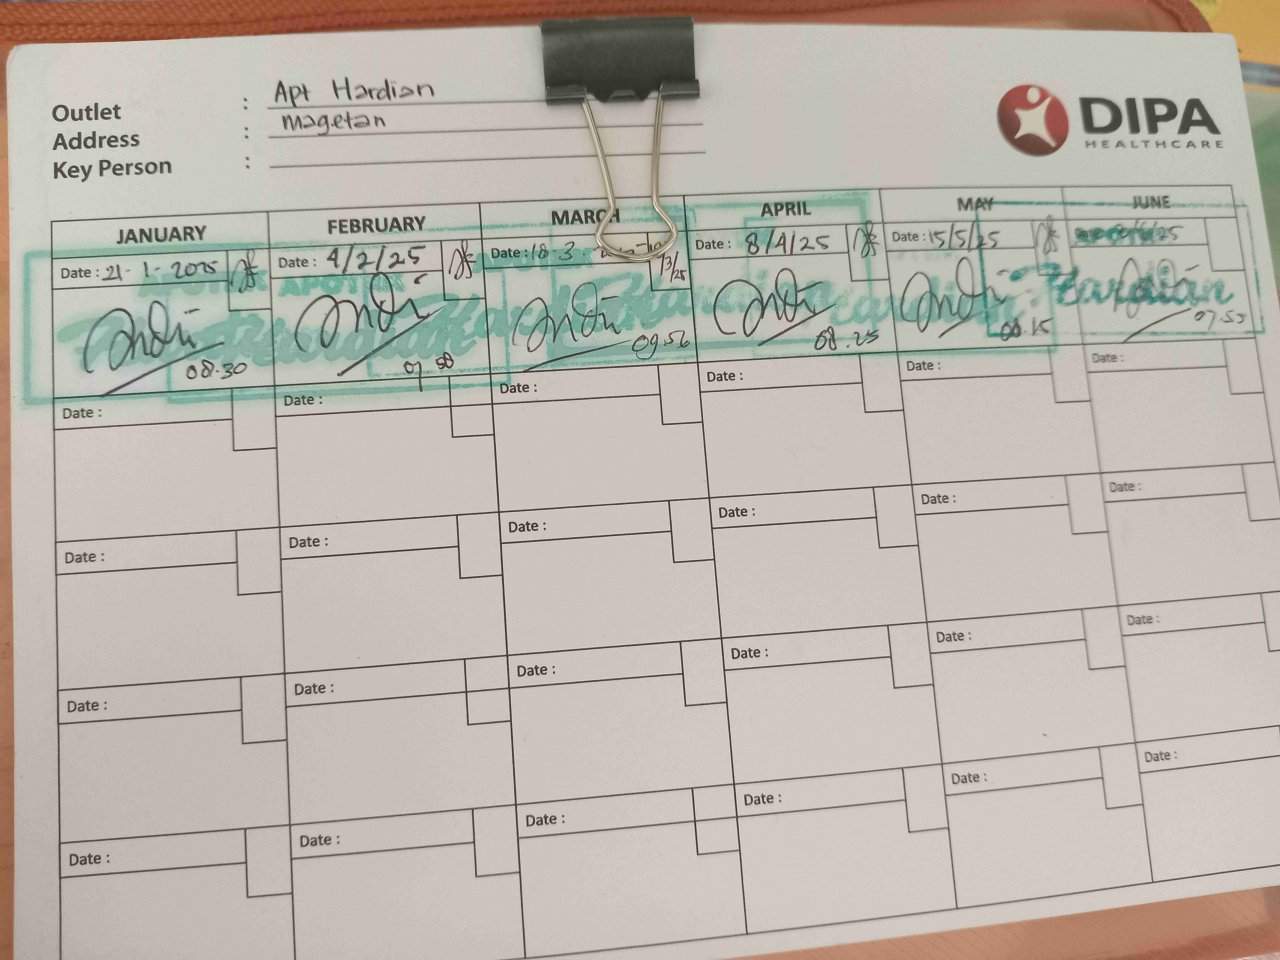 Outlet : Apt Hardian
Address : magetan
Key Person :
DIPA
HEALTHCARE
JANUARY FEBRUARY MARCH APRIL MAY JUNE
Date : 21-1-2025 Date : 4/2/25 Date : 18-3- Date : 8/4/25 Date : 15/5/25 /25
/3/25
APOTEK APOTEK APOTEK
Hardian
08.30 07.58 09.56 08.25 08.15 07.53
Date : Date : Date : Date : Date : Date :
Date : Date : Date : Date : Date : Date :
Date : Date : Date : Date : Date : Date :
Date : Date : Date : Date : Date : Date :